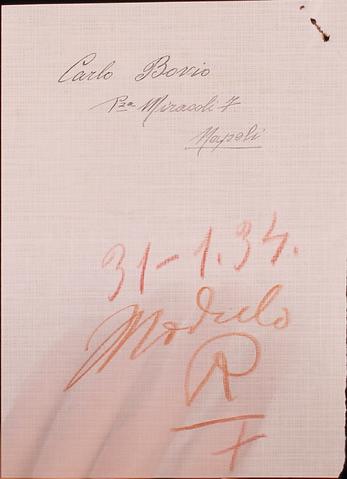 Carlo Bovio
Pza Miracoli 7
Napoli
31-1.34.
Modulo
R
7